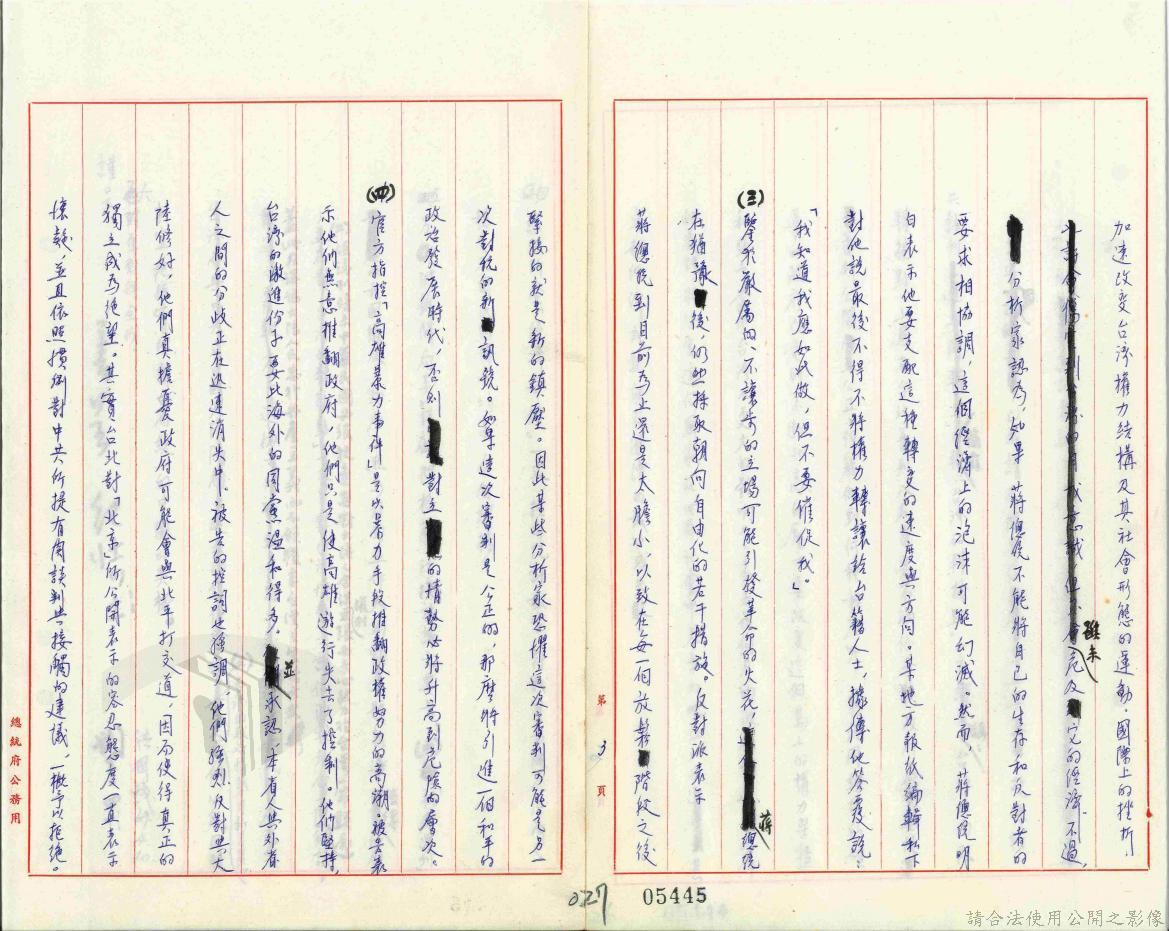 加速改变台湾权力結構及其社会形態的運動。國際上的挫折
雖未危及它的經濟。不过,
分析家認為,如果 蒋總统不能將自己的生存和反对者的
要求相協調,這個經濟上的泡沫可能幻滅。然而,蒋總统明
白表示他要支配這種轉变的速度與方向。某地方報紙编輯私下
對他說最後不得不將權力轉讓给台籍人士,據傳他答覆說:
「我知道我應如此做,但不要催促我」。
(三)堅永嚴厲的、不讓步的立場可能引發革命的火花,蒋總统
在猶豫後,仍然採取朝向自由化的若干措施。反對派表示
蒋總统到目前為止還是太膽小,以致在每一個放鬆階段之後
緊接的就是新的鎮壓。因此某些分析家恐懼這次審判可能是另一
次對抗的新訊號。如果這次審判是公正的,那麼將引進一個和平的
政治發展時代,否則對立的情勢必將升高到危險的層次。
(四)官方指控「高雄暴力事件」是以暴力手段推翻政權努力的高潮。被告表
示他们無意推翻政府,他們只是使高雄遊行失去了控制。他们堅持,
台湾的激進份子要比海外的同黨溫和得多。並承認,本省人與外省
人之間的分歧正在迅速消失中。被告的控詞也强調,他們强烈反對與大
陸修好,他們真擔憂政府可能會與北平打交道,因而使得真正的
獨立成為絕望。其實台北對「北京」所公開表示的容忍態度一直表示
懷疑,並且依照慣例對中共所提有關談判與接觸的建議,一概予以拒绝。
第 3 頁
總統府公務用
027
05445
請合法使用公開之影像